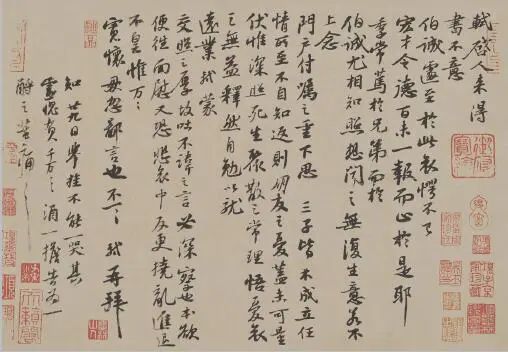 軾啓人來得
書不意
伯誠遽至於此哀愕不已
宏才令德百未一報而止於是耶
季常篤於兄弟而於
伯誠尤相知照想聞之無復生意若不
上念
門户付囑之重下思三子皆未成立任
情所至不自知返則朋友之憂蓋未可量
伏惟深照死生聚散之常理悟憂哀
之無益釋然自勉以就
遠業軾蒙
交照之厚故吐不諱之言必深察也本欲
便往面慰又恐悲哀中反更撓亂進退
不皇惟萬萬
寬懷毋忽鄙言也不一一軾再拜
知廿九日舉掛不能一哭其
靈愧負千萬千萬酒一擔告為一
酹之苦痛苦痛